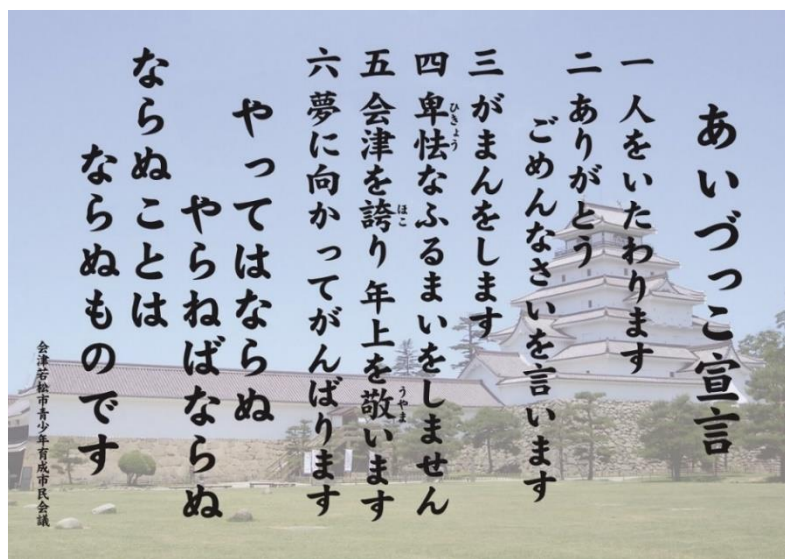 あいづっこ宣言
一 人をいたわります
二 ありがとう
ごめんなさいを言います
三 がまんをします
四 卑怯なふるまいをしません
ひきょう
五 会津を誇り年上を敬います
ほこ
うやま
六 夢に向かってがんばります
やってはならぬ
やらねばならぬ
ならぬことは
ならぬものです
会津若松市青少年育成市民会議